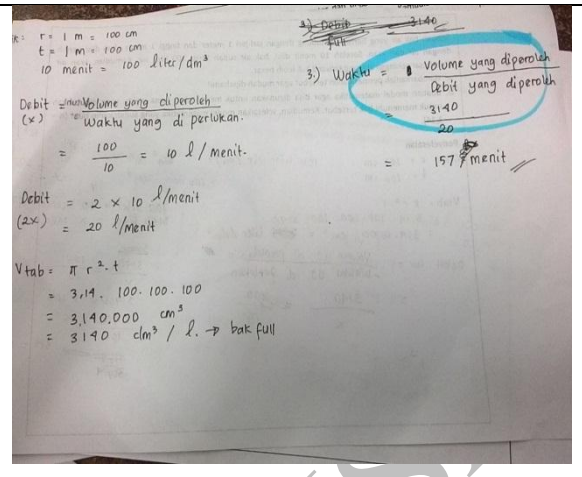 r = 1 m = 100 cm
t = 1 m = 100 cm
10 menit = 100 liter/dm³
Debit = Volume yang diperoleh
(x) Waktu yang di perlukan.
= 100
10 = 10 l/menit.
Debit = 2 x 10 l/menit
(2x) = 20 l/menit
Vtab = π r². t
= 3,14. 100. 100. 100
= 3.140.000 cm³
= 3140 dm³ / l. → bak full
3.) Debit 3140
full
3.) Waktu = Volume yang diperoleh
Debit yang diperoleh
= 3140
20
= 157 menit